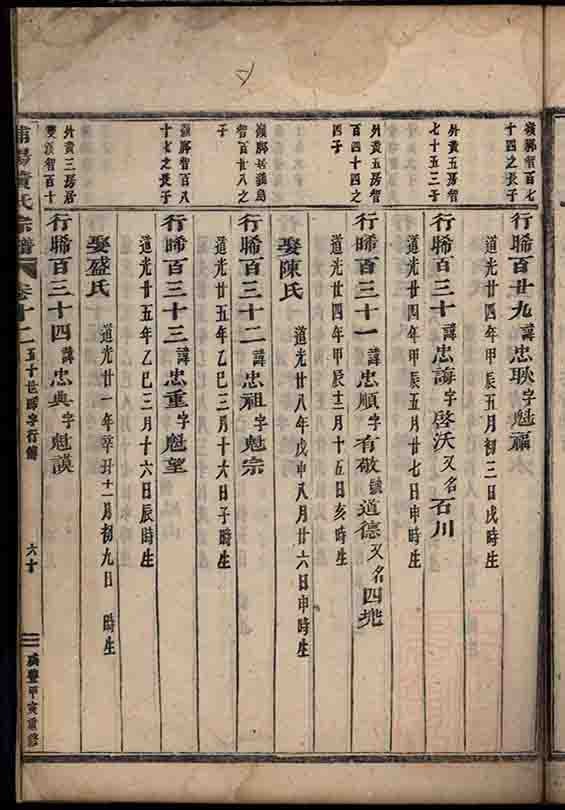 嶺腳智百七
十四之長子
行晞百廿九諱忠耿字魁
道光廿四年甲辰五月初三日戌時生
外黃五房智
七十五三子
行晞百三十諱忠誨字啓沃又名石川
道光廿四年甲辰五月廿七日申時生
外黃五房智
百四十四之
四子
行晞百三十一諱忠順字有敬號道德又名四兆
道光廿四年甲辰十二月十五日亥時生
娶陳氏
道光廿八年戊申八月廿六日申時生
嶺腳
智百廿八之
子
行晞百三十二諱忠祖字魁宗
道光廿五年乙巳三月十六日子時生
嶺腳智百八
十七之長子
行晞百三十三諱忠重字魁望
道光廿五年乙巳三月十六日辰時生
娶盛氏
道光廿一年辛丑十二月初九日 時生
外黃三房居
雙溪智百十
行晞百三十四諱忠典字魁謨
浦陽黃氏宗譜 卷十二 五十世晞字行傳 六十
咸豐甲寅重修